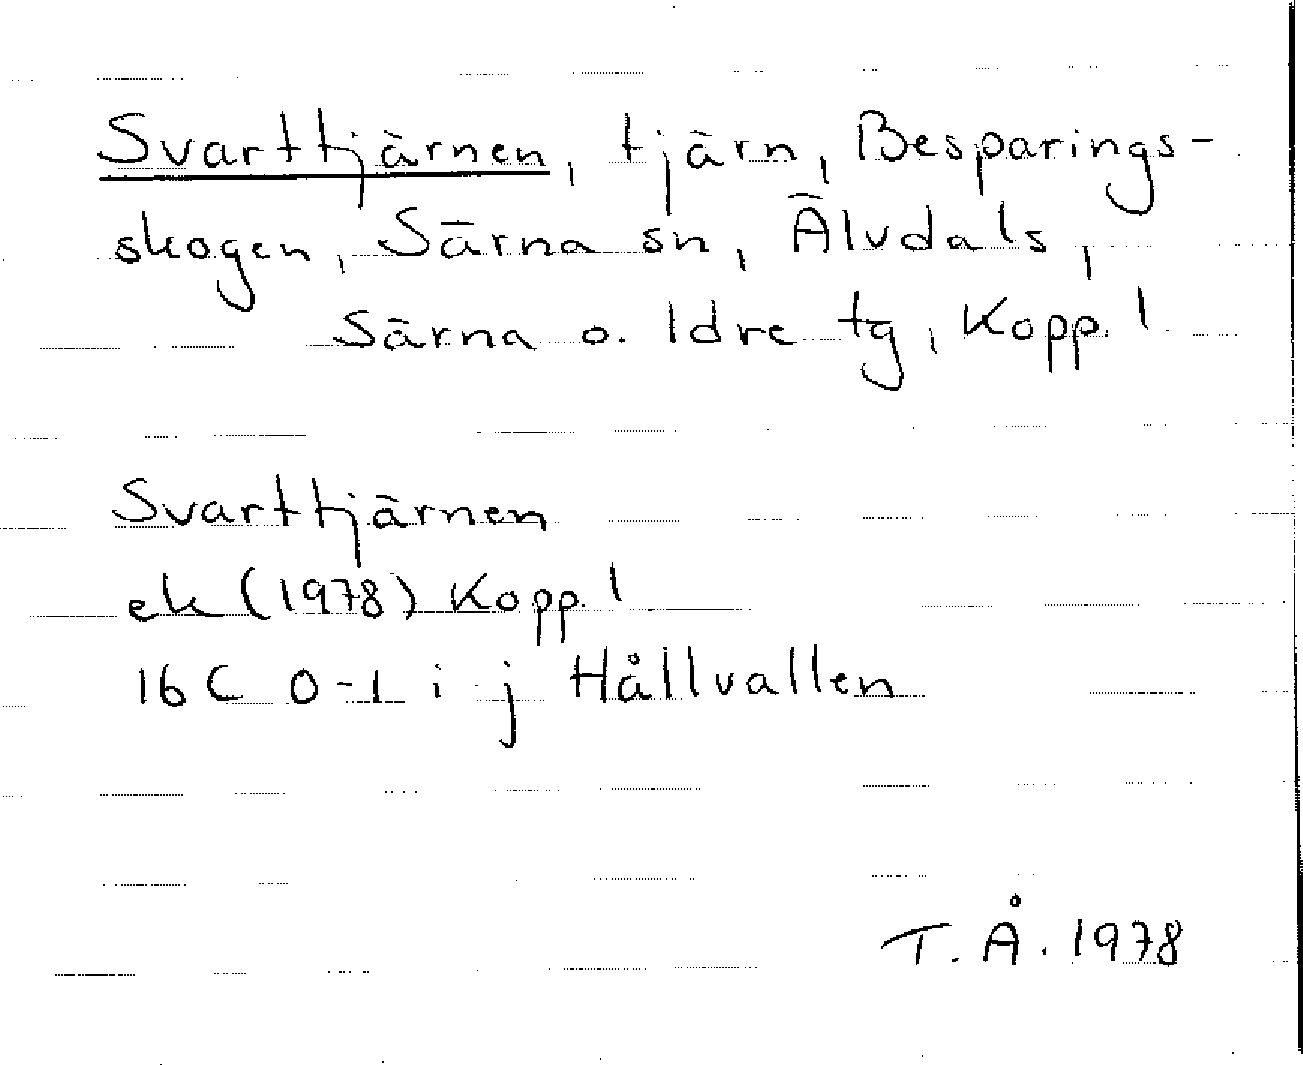 Svarttjärnen, tjärn, Besparings-
skogen, Särna sn, Älvdals,
Särna o. Idre tg, Kopp. l
Svarttjärnen
ek (1978) Kopp. l
16 C 0-1 i j Hållvallen
T. Å. 1978